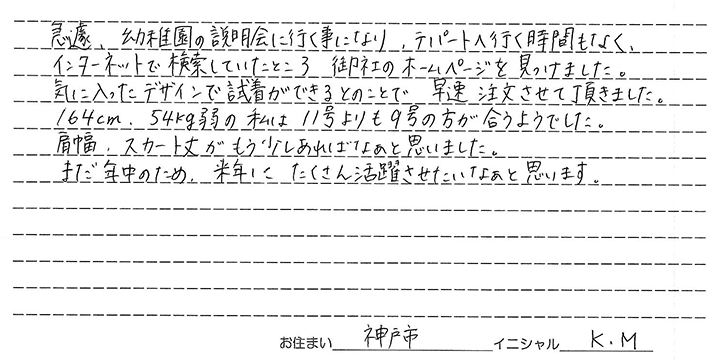 急遽、幼稚園の説明会に行く事になり、デパートへ行く時間もなく、
インターネットで検索していたところ 御社のホームページを見つけました。
気に入ったデザインで試着ができるとのことで 早速 注文させて頂きました。
164cm、54kg弱の私は11号よりも9号の方が合うようでした。
肩幅、スカート丈がもう少しあればなぁと思いました。
まだ年中のため、来年に たくさん活躍させたいなぁと思います。
お住まい 神戸市 イニシャル K.M